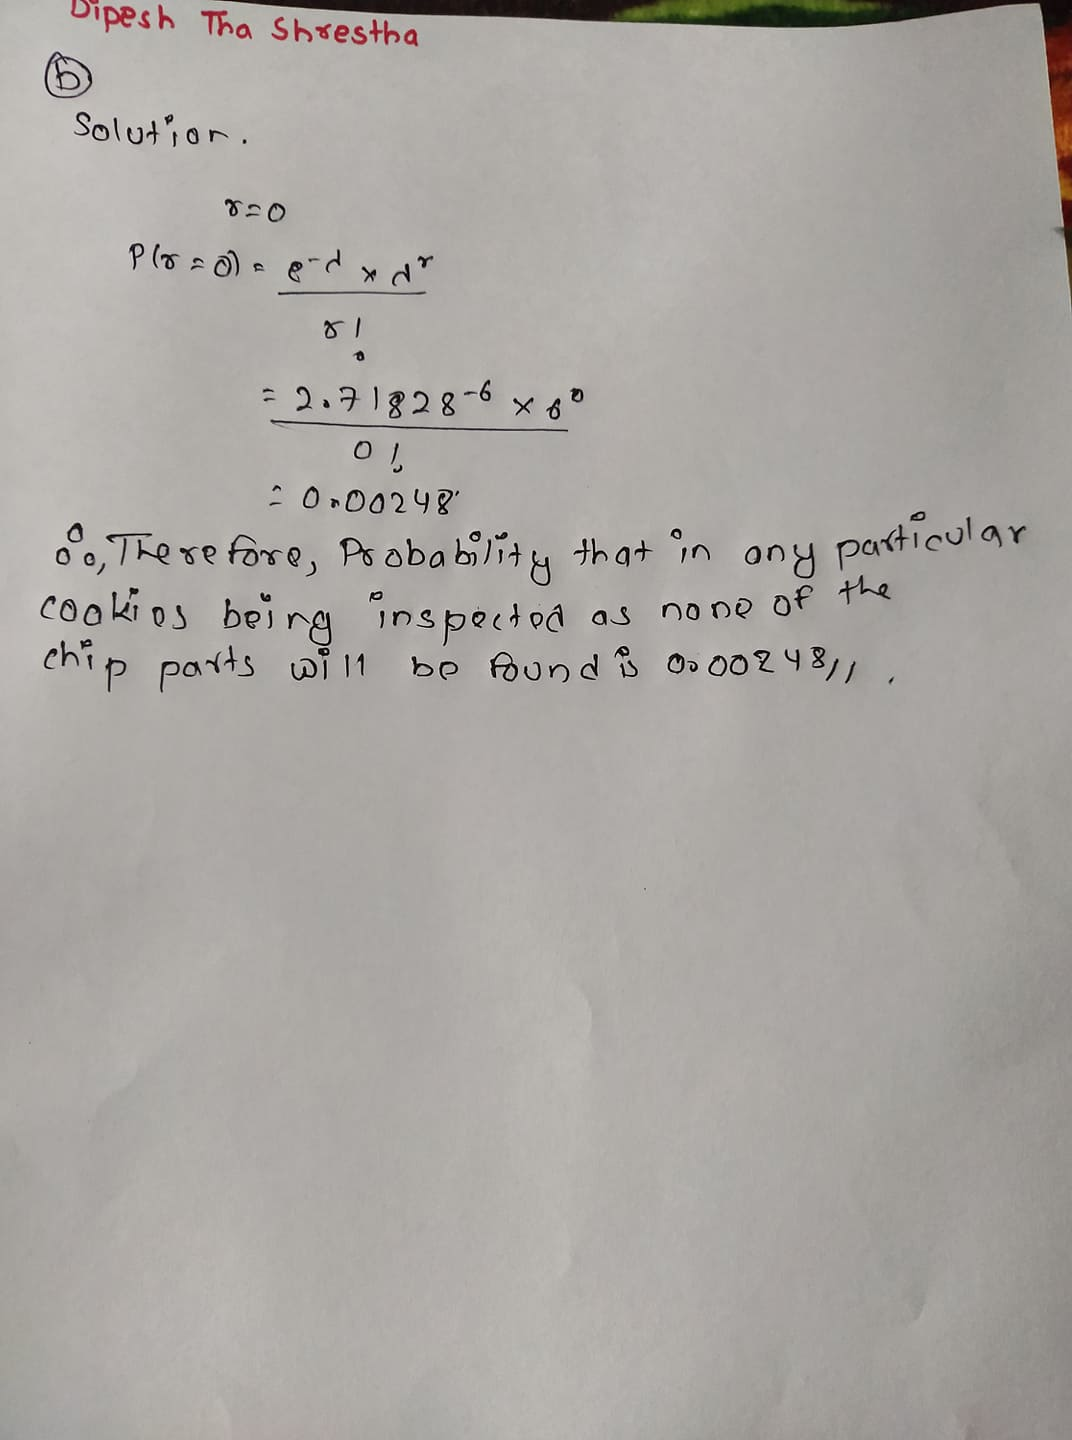 Dipesh Tha Shrestha
(b)
Solution.
r=0
P(r=0) = e^-d x d^r
r!
= 2.71828^-6 x 6^0
0!
= 0.00248
∴, Therefore, Probability that in any particular
cookies being inspected as none of the
chip parts will be found is 0.00248//.